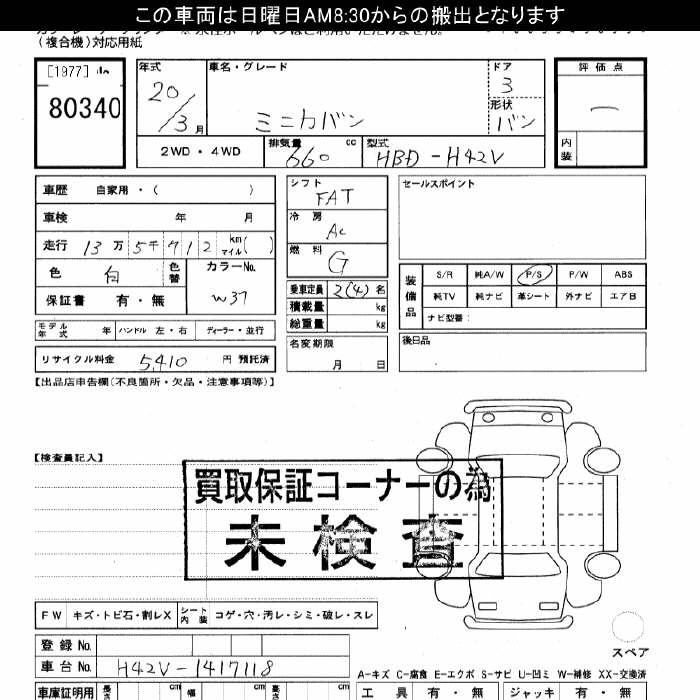 この車両は日曜日AM8:30からの搬出となります
（複合機）対応用紙
[1977]
80340
年式 車名・グレード ドア 評価点
20/3月 ミニカバン 3 形状 バン
2WD・4WD 排気量 660 cc 型式 HBD-H42V 内装
車歴 自家用・（ ）
車検 年 月
走行 13万5千912 km マイル( )
色 白 色替 カラーNo. W37
保証書 有・無
モデル年式 年 ハンドル 左・右 ディーラー・並行
リサイクル料金 5,410 円 預託済
シフト FAT
冷房 AC
燃料 G
乗車定員 2(4)名
積載量 kg
総重量 kg
名変期限 月 日
セールスポイント
装備品 S/R 純A/W P/S P/W ABS
純TV 純ナビ 革シート 外ナビ エアB
ナビ型番：
後日品
【出品店申告欄（不良箇所・欠品・注意事項等）】
【検査員記入】
買取保証コーナーの為
未検査
FW キズ・トビ石・割レX シート内装 コゲ・穴・汚レ・シミ・破レ・スレ
スペア
登録No.
車台No. H42V-1417118
A-キズ C-腐食 E-エクボ S-サビ U-凹ミ W-補修 XX-交換済
車庫証明用 長さ cm 幅 cm 高さ cm 工具 有・無 ジャッキ 有・無